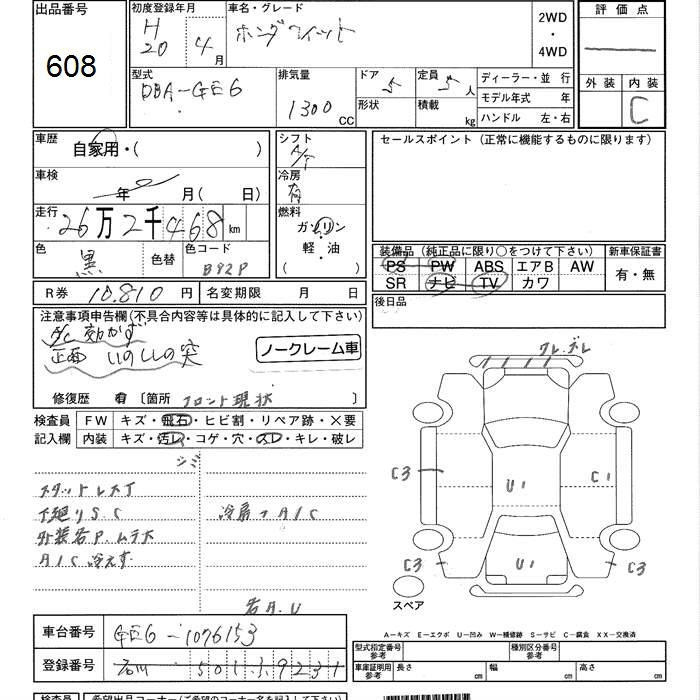 出品番号
608
初度登録年月
H
20 4月
車名・グレード
ホンダフィット
2WD
・
4WD
評価点
外装 内装
C
型式
DBA-GE6
排気量
1300 CC
ドア 5
形状
定員 5人
積載 kg
ディーラー・並行
モデル年式 年
ハンドル 左・右
車歴
自家用・( )
シフト
A/T
セールスポイント (正常に機能するものに限ります)
車検
年 月( 日)
冷房
有
走行
26万2千468km
燃料
ガソリン
軽・油
( )
色
黒
色替
色コード
B92P
装備品 (純正品に限り○をつけて下さい)
PS PW ABS エアB AW
SR ナビ TV カワ
新車保証書
有・無
R券 10.810円
名変期限 月 日
後日品
注意事項申告欄(不具合内容等は具体的に記入して下さい)
A/C 効かず
正面 いのししの突
ノークレーム車
修復歴 有 〔箇所 フロント現状 〕
検査員
記入欄
FW キズ・飛石・ヒビ割・リペア跡・×要
内装 キズ・汚レ・コゲ・穴・スレ・キレ・破レ
シミ
スタットレス丁
下廻りS.C
外装各P.ムラホ
A/C 冷えず
右A.U
ワレ.ズレ
C3
U1
C1
C3
U1
C3
スペア
A-キズ E-エクボ U-凹み W-補修跡 S-サビ C-腐食 XX-交換済
車台番号 GE6-1076153
登録番号 石川 501 ﾅ 9231
型式指定番号
参考
種別区分番号
参考
車庫証明用
参考
長さ cm
幅 cm
高さ cm
検査員
希望出品コーナー(ご希望のコーナー名を記入して下さい)